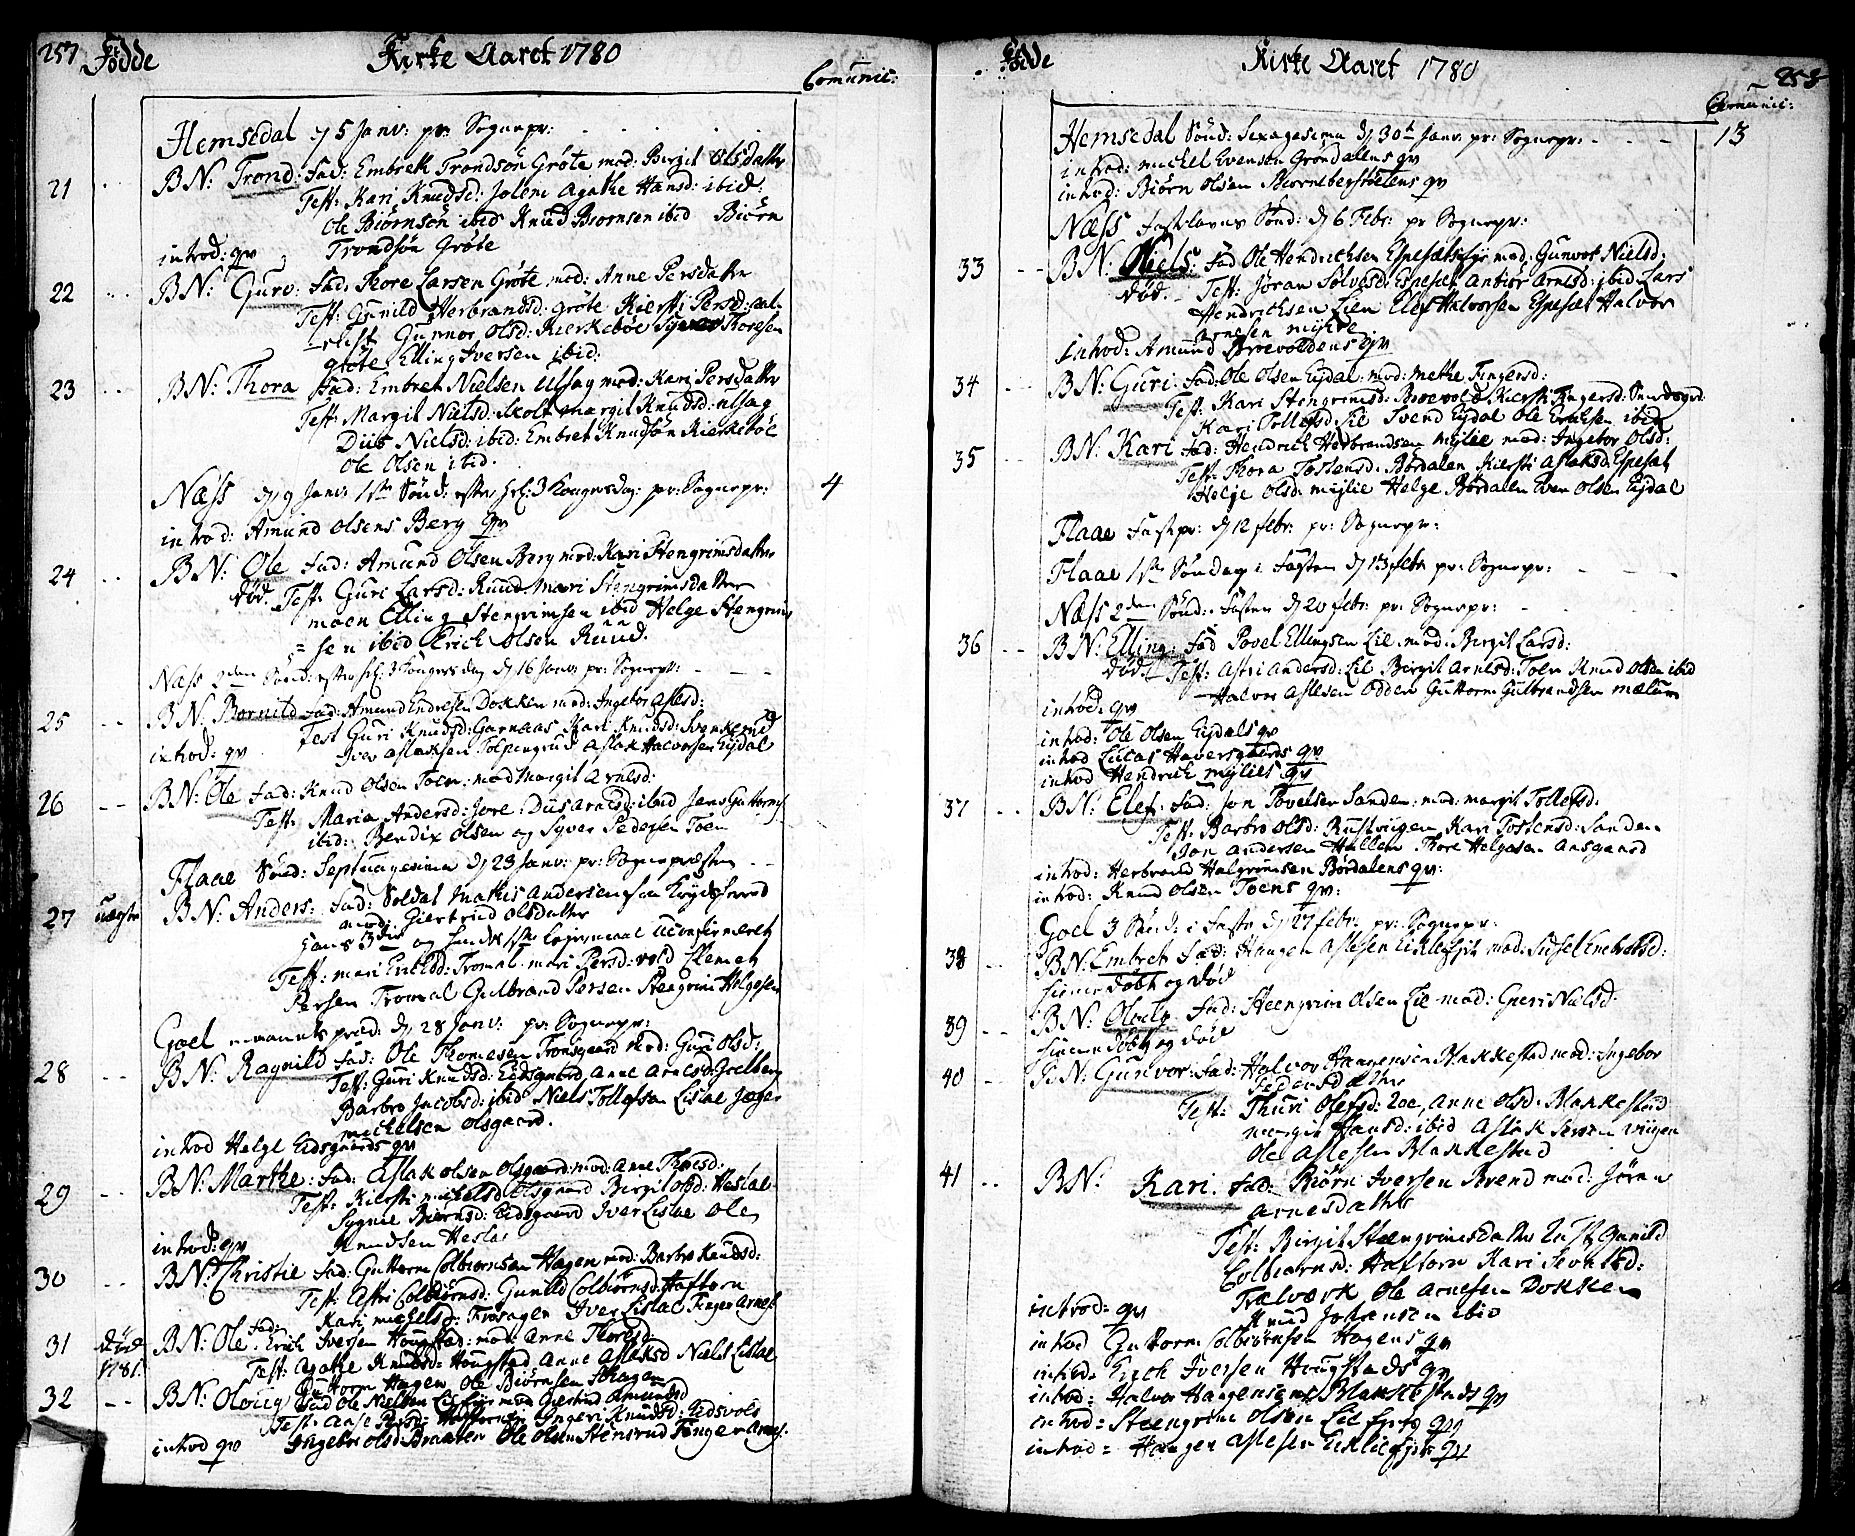 257 Fødde Kirke Aaret 1780
Comunic:
Hemsedal d 5 Janv: pr: Sognepr:
21 BN: Trond: Fad: Embrek Trondsøn Grøte mod: Birgit Olsdatter
Test: Kari Knudsd: Jolem Agathe Hansd: ibid:
Ole Biørnsøn ibid Knud Biornsen ibid Biørn
Trondsøn Grøte
introd: qv
22 BN: Guro. Fad: Thore Larsen Grøte mod: Anne Persdatter
Test: Gunild Herbrandsd: Grøte Kiersti Persd:
Gunnor Olsd: Kierkebøe Thoresen
grøte Elling Iversen ibid:
23 BN: Thora Fad: Embret Nielsen Ulsag mod: Kari Persdatter
Test: Margit Nielsd: Skolt margit Knudsd: ulsag
Nielsd: ibid: Embret Knudsøn Kierkebøe
Ole Olsen ibid.
Næss d 9 Janv: 1ste Sønd: efter Hel: 3 Kongersdag: pr: Sognepr: 4
introd: Amund Olsens Berg qv
24 BN: Ole Fad: Amund Olsen Berg mod: Kari Stengrimsdatter
død. Test: Guri Larsd: Ruud. Mari Stengrimsdatter
moen Elling Stengrimsen ibid Helge Stengrim
=sen ibid Erich Olsen Ruud.
Næss 2den Sønd: efter Hel: 3 Kongersdag d 16 Janv: pr: Sognepr:
25 BN: Bornild Fad: Amund Endresen Dokken mod: Ingebor Aslesd:
Test Guri Knudsd: Garnaas Kari Knudsd:
introd: qv Iver Aslaksen Tolpingrud Aslak Halvorsen Eydal
26 BN: Ole Fad: Knud Olsen Toen: mod Margit Arnesd:
Test: Maria Andersd: Jore: Arnesd: ibid Jens Guttorms
ibid: Bendix Olsen og Syver Pedersen Toen
Flaae Sønd: Septuagesima d 23 Janv: pr: Sognepræsten
27 uægte BN: Anders: Fad: Soldat Mathis Andersen
mod: Giertrud Olsdatter
Hans 3die og hendes 1ste Leyermaal
Test: mari Tromal. mari Persd: vold Klemet
Persen Tromal Gulbrand Persen Steengrim Helgesen
Goel præd: d 28 Janv: pr: Sognepr:
28 BN: Ragnild Fad: Ole Thomesen Tronsgaard Mod: Guri Olsd:
Test: Guri Knudsd: Eidsgaard Anne Arnesd: Goelberg
Barbro Jacobsd: ibid Niels Tollefsen Lislae
michelsen Olsgaard.
introd Helge Eidsgaards qv
29 BN: Marthe: Fad: Aslak Olsen Olsgaard: mod: Anne Thoresd:
Test: Kiersti michelsd Olsgaard Birgit Olsd: Heslae
Sygnie Biørnsd: Eidsgaard Iver Lislae Ole
introd: qv Knudsen Heslae
30 BN: Christie Fad: Guttorm Colbiornsen Hagen mod: Barbro Knudsd:
Test: Astri Colbiørnsd: Gunild Colbiørnsd: Haftorn
Kari michelsd: Iver Lislae Finger Arnes
31 død 1781. BN: Ole Fad: Erich Iversen Hougstad: mod: Anne Thoresd:
Test: Agathe Knudsd: Hougstad Anne Aslaksd Niels Lislae
Guttorm Hagen Ole Biørnsen Hagen
32 BN: Oloug Fad Ole Nielsen mod Giertrud Amundsd
Test: Ingeri Knudsd: Eidsvols
introd qv Ingebr Olsd: Braaten Ole Olsen Stensrud Finger Arnes:
Fødde Kirke Aaret 1780 258
Comunic:
Hemsedal Sønd: Sexagesima d 30te Janv: pr: Sognepr: 13
introd: michel Evensøn Grøndalens qv
introd: Biørn Olsen qv
Næss Fastelavns Sønd: d 6 Febr: pr Sognepr:
33 BN: Niels: Fad Ole Hendrichsen mod: Gunvor Nielsd:
død. Test: Jøran Sølvesd: Espeset Anbiør Arnesd: ibid Lars
Hendrichsen Lien Elef Halvorsen Espeset Halvor
Arnesen myhre
introd: Amund Broevoldens qv
34 BN: Guri. Fad: Ole Olsen Eydal. mod: Methe Fingersd:
Test: Kari Stengrimsd: Broevold Kiersti Fingersd:
Kari Tollefsd Lie Svend Eydal Ole ibid
35 BN: Kari Fad: Hendrich Herbrandsen Mylie mod: Ingebor Olsd:
Test: Thora Tostensd: Børdalen Kiersti Aslaksd: Espeset
Helje Olsd: mylie Helge Børdalen Even Olsen Eydal
Flaae d 12 febr: pr: Sognepr:
Flaae 1ste Søndag i Fasten d 13 febr: pr: Sognepr:
Næss 2den Sønd: i Fasten d 20 febr: pr: Sognepr:
36 BN: Elling: Fad Povel Ellingsen Lie. mod: Birgit Larsd:
død. Test: Astri Andersd: Lie Birgit Arnesd: Toen Knud Olsen ibid
Halvor Aslesen Odden Guttorm Gulbrandsen mælum
introd: qv
introd: Ole Olsen Eydals qv
introd Lucas Haversgaards qv
introd Hendrich mylies qv
37 BN: Elef: Fad: Jon Povelsen Sanden. mod: margit Tollefsd:
Test: Barbro Olsd: Rustvigen Kari Tostensd: Sanden
Jon Andersen Hallem Thore Helgesen Ansgaard
introd: Herbrand Halgrimsen Børdalens qv:
introd: Knud Olsen Toens qv:
Goel 3 Sønd: i Faste d 27 febr: pr: Sognepr:
38 BN: Embret Fad: Haagen Aslesen mod: Sidsel Embretsd:
hiemedøbt og død
39 BN: Fad: Steengrim Olsen Lie mod: Guri Nielsd:
hiemedøbt og død
40 BN: Gunvor: Fad: Halvor Haagensen Blakkestad mod: Ingebor
Pedersdatter
Test: Thuri Olefsd: Anne Olsd: Blakkestad
margit Hansd: ibid Aslak Iversen viigen
Ole Aslesen Blakkestad
41 BN: Kari. Fad: Biørn Iversen Brend mod: Jøran
Arnesdatter
Test: Birgit Steengrimsdatter Gunild
Colbiørnsd: Haftorn Kari
Trælværk Ole Arnesen Dokken
Knud Johansen ibid
introd: qv
introd Guttorm Colbiørnsen Hagens qv
introd: Erich Iversen Hougstads qv
introd: Halvor Haagensens Blakkestads qv
introd: Steengrim Olsen Lie qv
introd: Haagen Aslesen qv